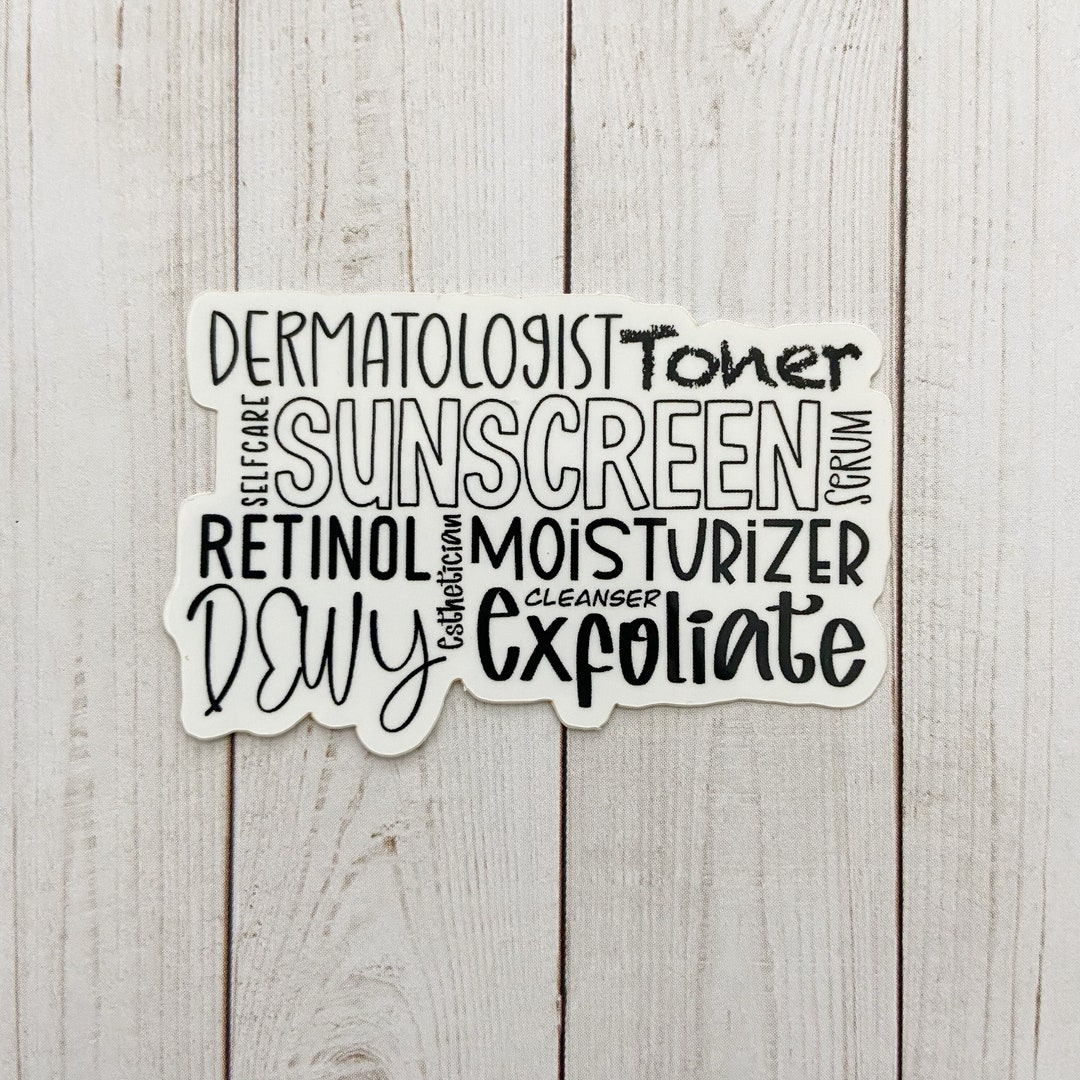 DERMATOLOGIST Toner
SELFCARE
SUNSCREEN
SERUM
RETINOL
esthetician
MOiSTURiZER
DEWY
CLEANSER
exfoliate